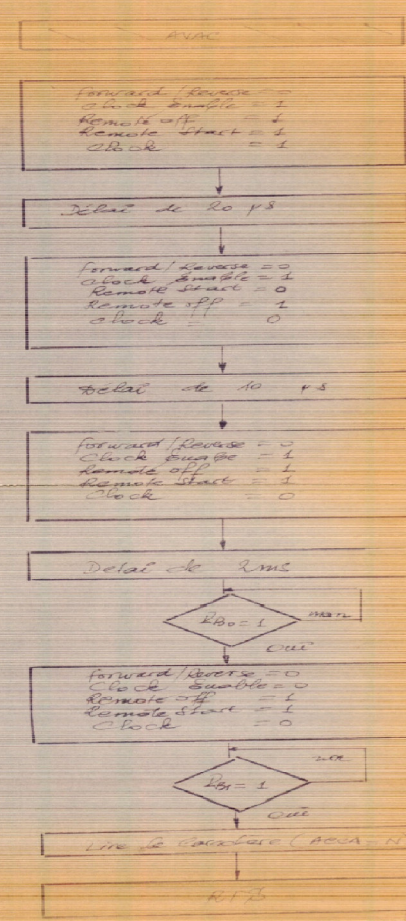 AVAC
Forward / Reverse = 0
Clock Enable = 1
Remote off = 1
Remote Start = 1
Clock = 1
Délai de 20 µs
Forward / Reverse = 0
Clock Enable = 1
Remote Start = 0
Remote off = 1
Clock = 0
Délai de 10 µs
Forward / Reverse = 0
Clock Enable = 1
Remote off = 1
Remote Start = 1
Clock = 0
Delai de 2ms
= 1
non
oui
Forward / Reverse = 0
Clock Enable = 0
Remote off = 1
Remote Start = 1
Clock = 0
non
= 1
oui
Lire le Caractère ( ACCA